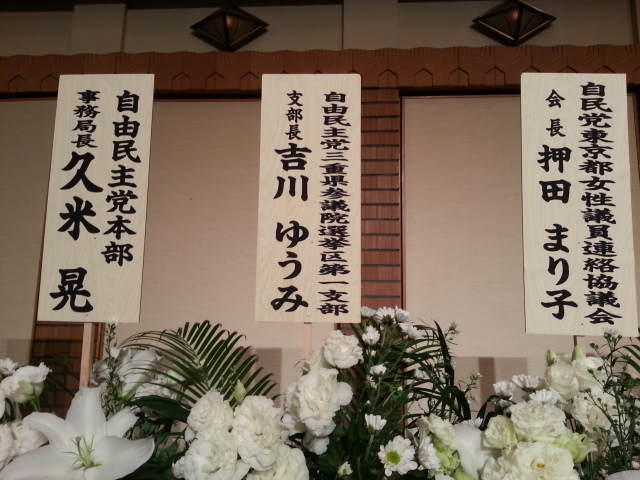 自由民主党本部
事務局長 久米 晃
自由民主党三重県参議院選挙区第一支部
支部長 吉川 ゆうみ
自民党東京都女性議員連絡協議会
会長 押田 まり子